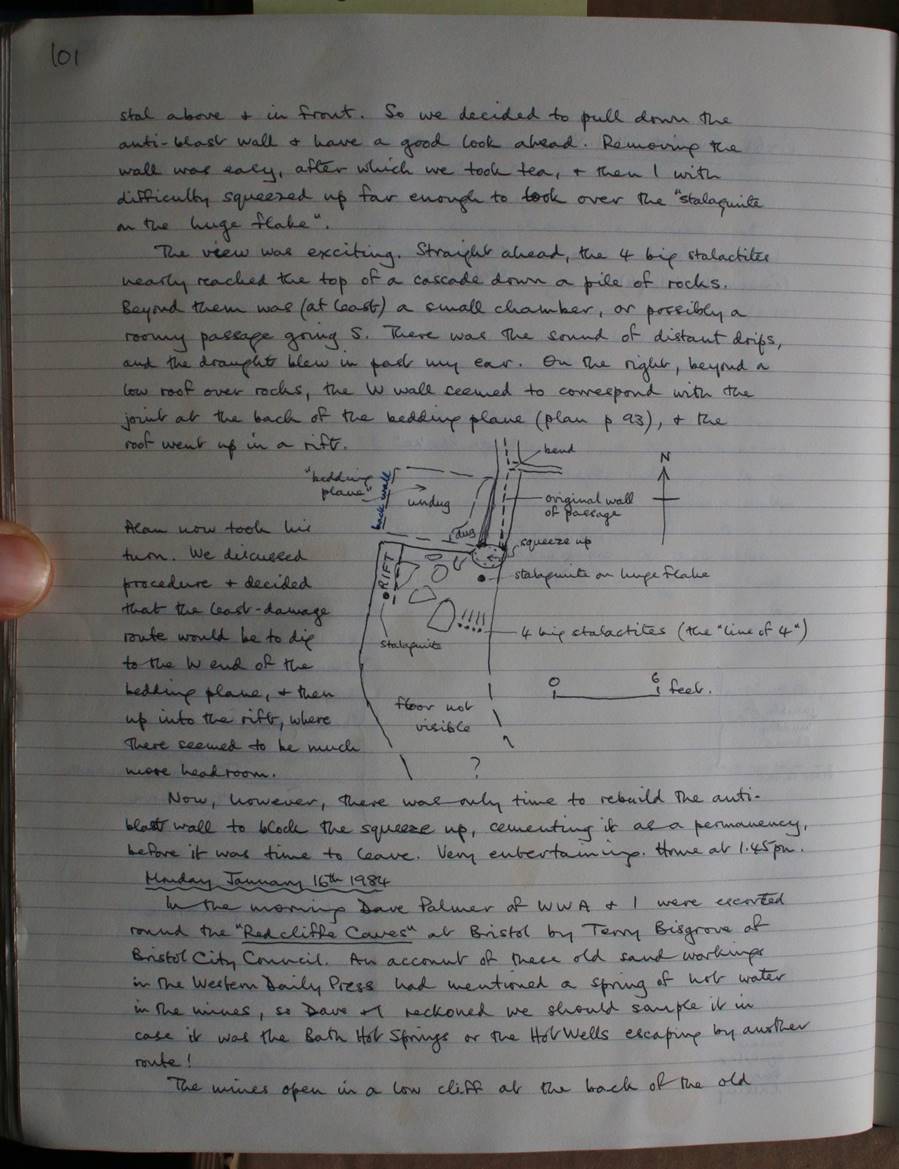 101
stal above + in front. So we decided to pull down the
anti-blast wall + have a good look ahead. Removing the
wall was easy, after which we took tea, + then I with
difficulty squeezed up far enough to look over the "stalagmite
on the huge flake".
The view was exciting. Straight ahead, the 4 big stalactites
nearly reached the top of a cascade down a pile of rocks.
Beyond them was (at least) a small chamber, or possibly a
roomy passage going S. There was the sound of distant drips,
and the draught blew in past my ear. On the right, beyond a
low roof over rocks, the W wall seemed to correspond with the
joint at the back of the bedding plane (plan p 93), + the
roof went up in a rift.
bend
"bedding
plane"
back wall
undug
dug
N
original wall
of passage
squeeze up
RIFT
stalagmite on huge flake
stalagmite
4 big stalactites (the "line of 4")
0 6 feet.
floor not
visible
?
Alan now took his
turn. We discussed
procedure + decided
that the least-damage
route would be to dig
to the W end of the
bedding plane, + then
up into the rift, where
there seemed to be much
more headroom.
Now, however, there was only time to rebuild the anti-
blast wall to block the squeeze up, cementing it as a permanency,
before it was time to leave. Very entertaining. Home at 1.45pm.
Monday January 16th 1984
In the morning Dave Palmer of WWA + I were escorted
round the "Redcliffe Caves" at Bristol by Terry Bisgrove of
Bristol City Council. An account of these old sand workings
in the Western Daily Press had mentioned a spring of hot water
in the mines, so Dave + I reckoned we should sample it in
case it was the Bath Hot Springs or the Hot Wells escaping by another
route!
The mines open in a low cliff at the back of the old